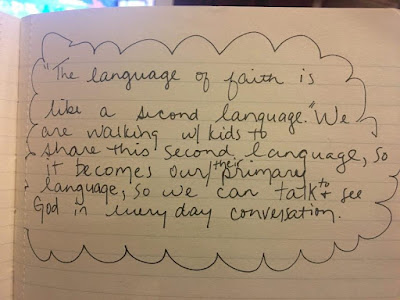 "The language of faith is
like a second language." We
are walking w/ kids to
share this second language, so
it becomes our/their primary
language, so we can talk to & see
God in every day conversation.